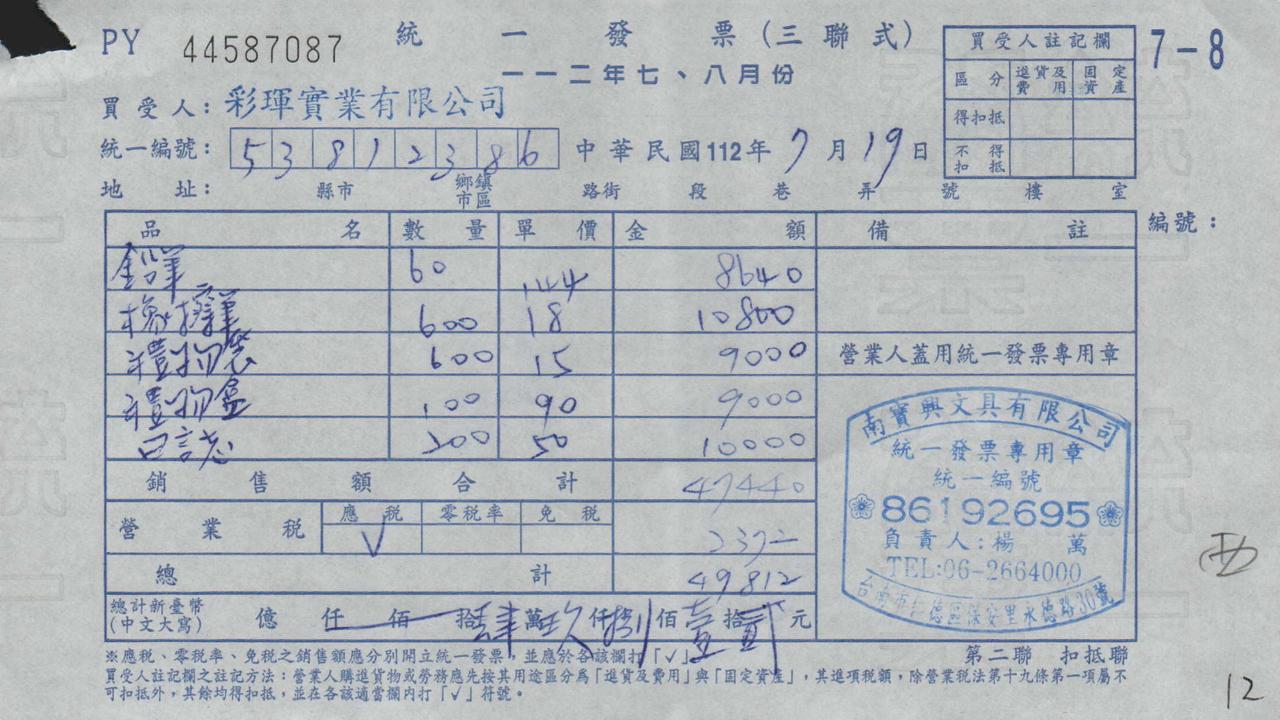 PY 44587087 統一發票(三聯式)
一一二年七、八月份
7-8
買受人註記欄
區分 進貨及費用 固定資產
得扣抵
不得扣抵
買受人:彩琿實業有限公司
統一編號: 53812386 中華民國112年7月19日
地址: 縣市 鄉鎮市區 路街 段 巷 弄 號 樓 室
編號:
品名 數量 單價 金額 備註
鉛筆 60 144 8640
橡擦筆 600 18 10800
禮物袋 600 15 9000
禮物盒 100 90 9000
200 50 10000
營業人蓋用統一發票專用章
銷售額合計 47440
營業稅 應稅 零稅率 免稅
√ 2372
總計 49812
總計新臺幣(中文大寫) 億 仟 佰 拾肆萬玖仟捌佰壹拾貳元
南寶興文具有限公司
統一發票專用章
統一編號
86192695
負責人:楊 萬
TEL:06-2664000
台南市仁德區保安里永德路30號
※應稅、零稅率、免稅之銷售額應分別開立統一發票,並應於各該欄打「√」。
第二聯 扣抵聯
買受人註記欄之註記方法:營業人購進貨物或勞務應先按其用途區分為「進貨及費用」與「固定資產」,其進項稅額,除營業稅法第十九條第一項屬不
可扣抵外,其餘均得扣抵,並在各該適當欄內打「√」符號。
12